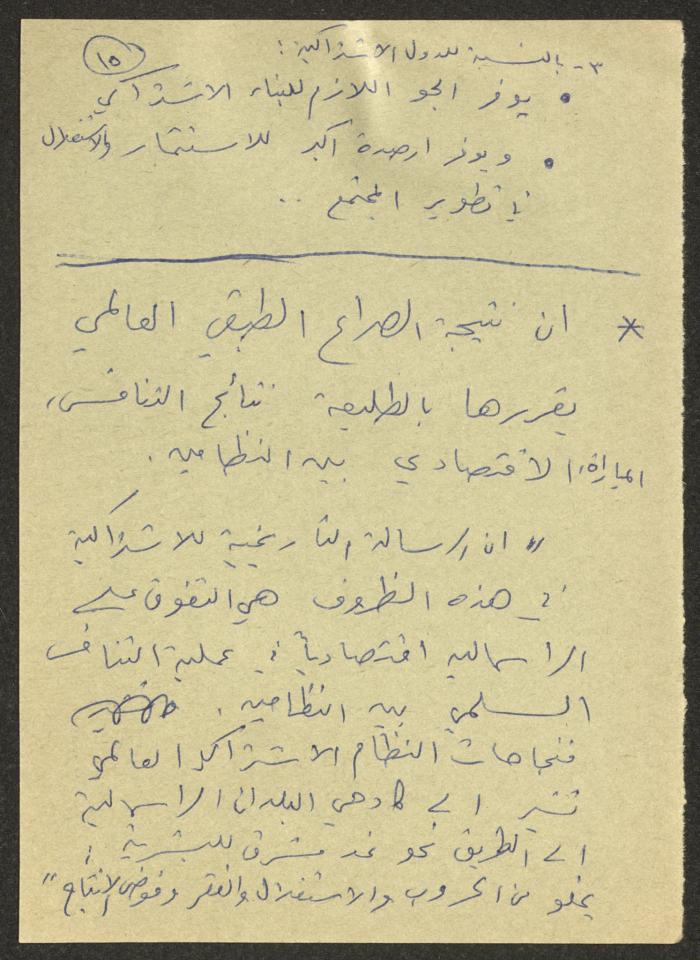 ١٥
٣- بالنسبة للدول الاشتراكية :
• يوفر الجو اللازم للبناء الاشتراكي
• ويوفر ارصدة اكبر للاستثمار والاستغلال
في تطوير المجتمع ..
* ان نتيجة الصراع الطبقي العالمي
يقررها بالطليعة نتائج التنافس،
المباراة الاقتصادي بين النظامين .
" ان الرسالة التاريخية للاشتراكية
في هذه الظروف هي التفوق على
الراسمالية اقتصادياً في عملية التنافس
السلمي بين النظامين .
فنجاحات النظام الاشتراكي العالمي
تشير الى كادحي البلدان الراسمالية
الى الطريق نحو غد مشرق للبشرية ؛
يخلو من الحروب والاستغلال والفقر وفوضى الانتاج "